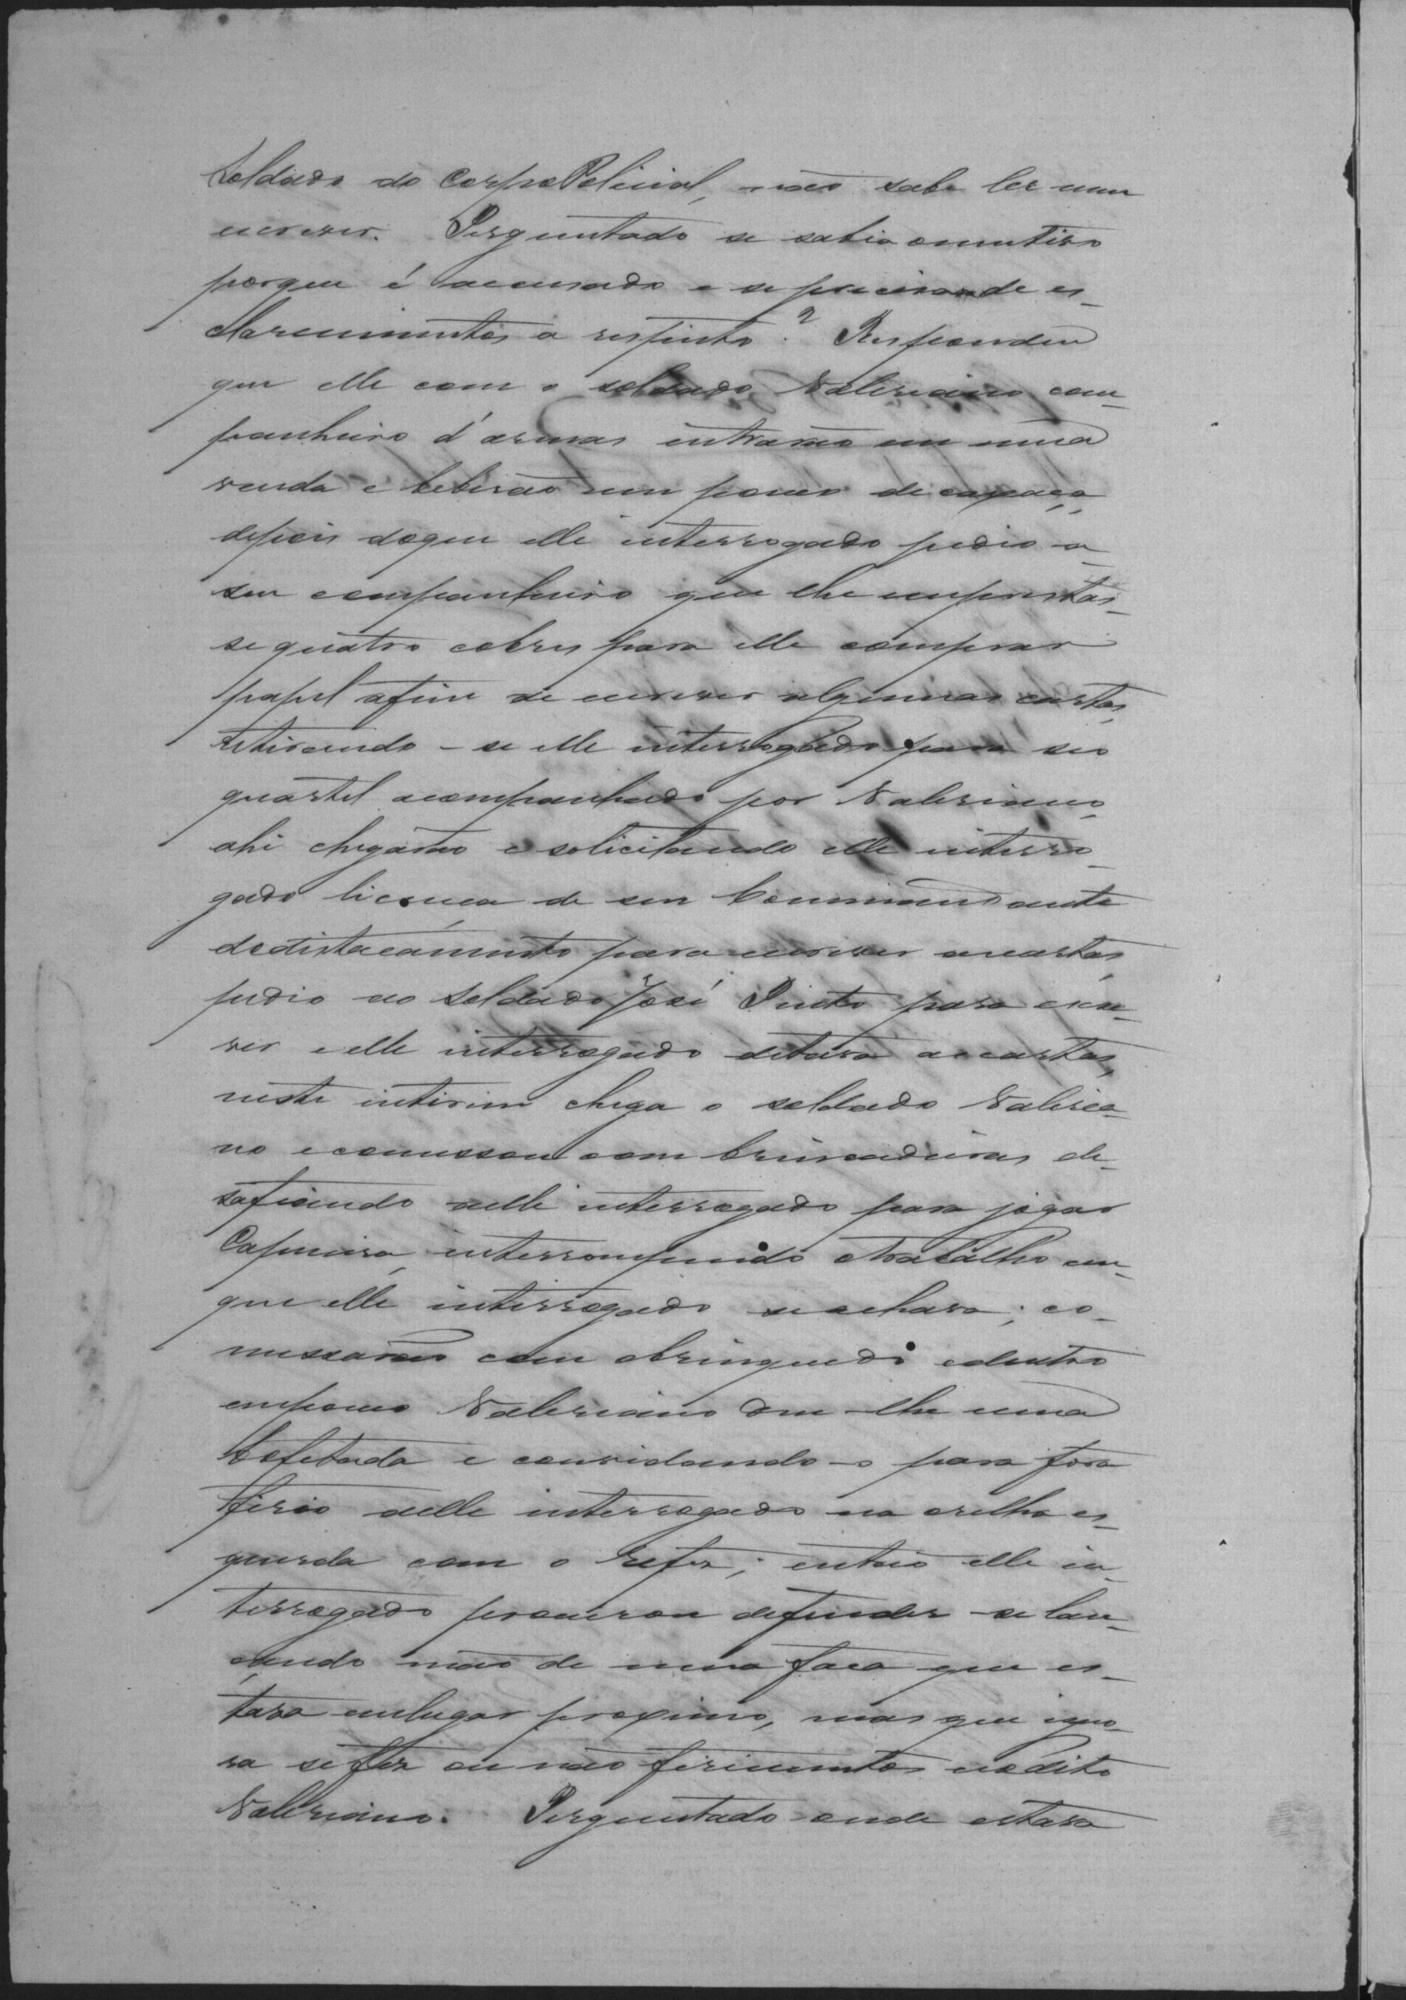 Soldado do Corpo Policial, não sabe ler nem
escrever. Perguntado se sabia o motivo
porque é accusado e se precisava de es-
clarecimentos a respeito? Respondeu
que elle com o soldado Valeriano com-
panheiro d'armas entrarão em uma
venda e beberão um pouco de caxaça,
depois do que elle interrogado pedio a
seu companheiro que lhe empresta-
se quatro cobres para elle comprar
papel afim de escrever algumas cartas,
retirando-se elle interrogado para seo
quartel acompanhado por Valeriano,
ahi chegarão e solicitando elle interro-
gado licença de seu Commandante
do distacamento para escrever as cartas,
pedio ao soldado José Pinto para escre-
ver e elle interrogado ditava as cartas,
neste interim chega o soldado Valeria-
no e comessou com brincadeiras de-
safiando aelle interrogado para jogar
Capueira, interrompendo o trabalho em
que elle interrogado se achava; co-
messarão com o brinquedo e dentro
em pouco Valeriano deu-lhe uma
bofetada e convidando-o para fora
ferio aelle interrogado na orelha es-
querda com o refe; então elle in-
terrogado procurou defender-se lan-
çando mão de uma faca que es-
tava em lugar proximo, mas que igno-
ra se fez ou não ferimentos no dito
Valeriano. Perguntado onde estava